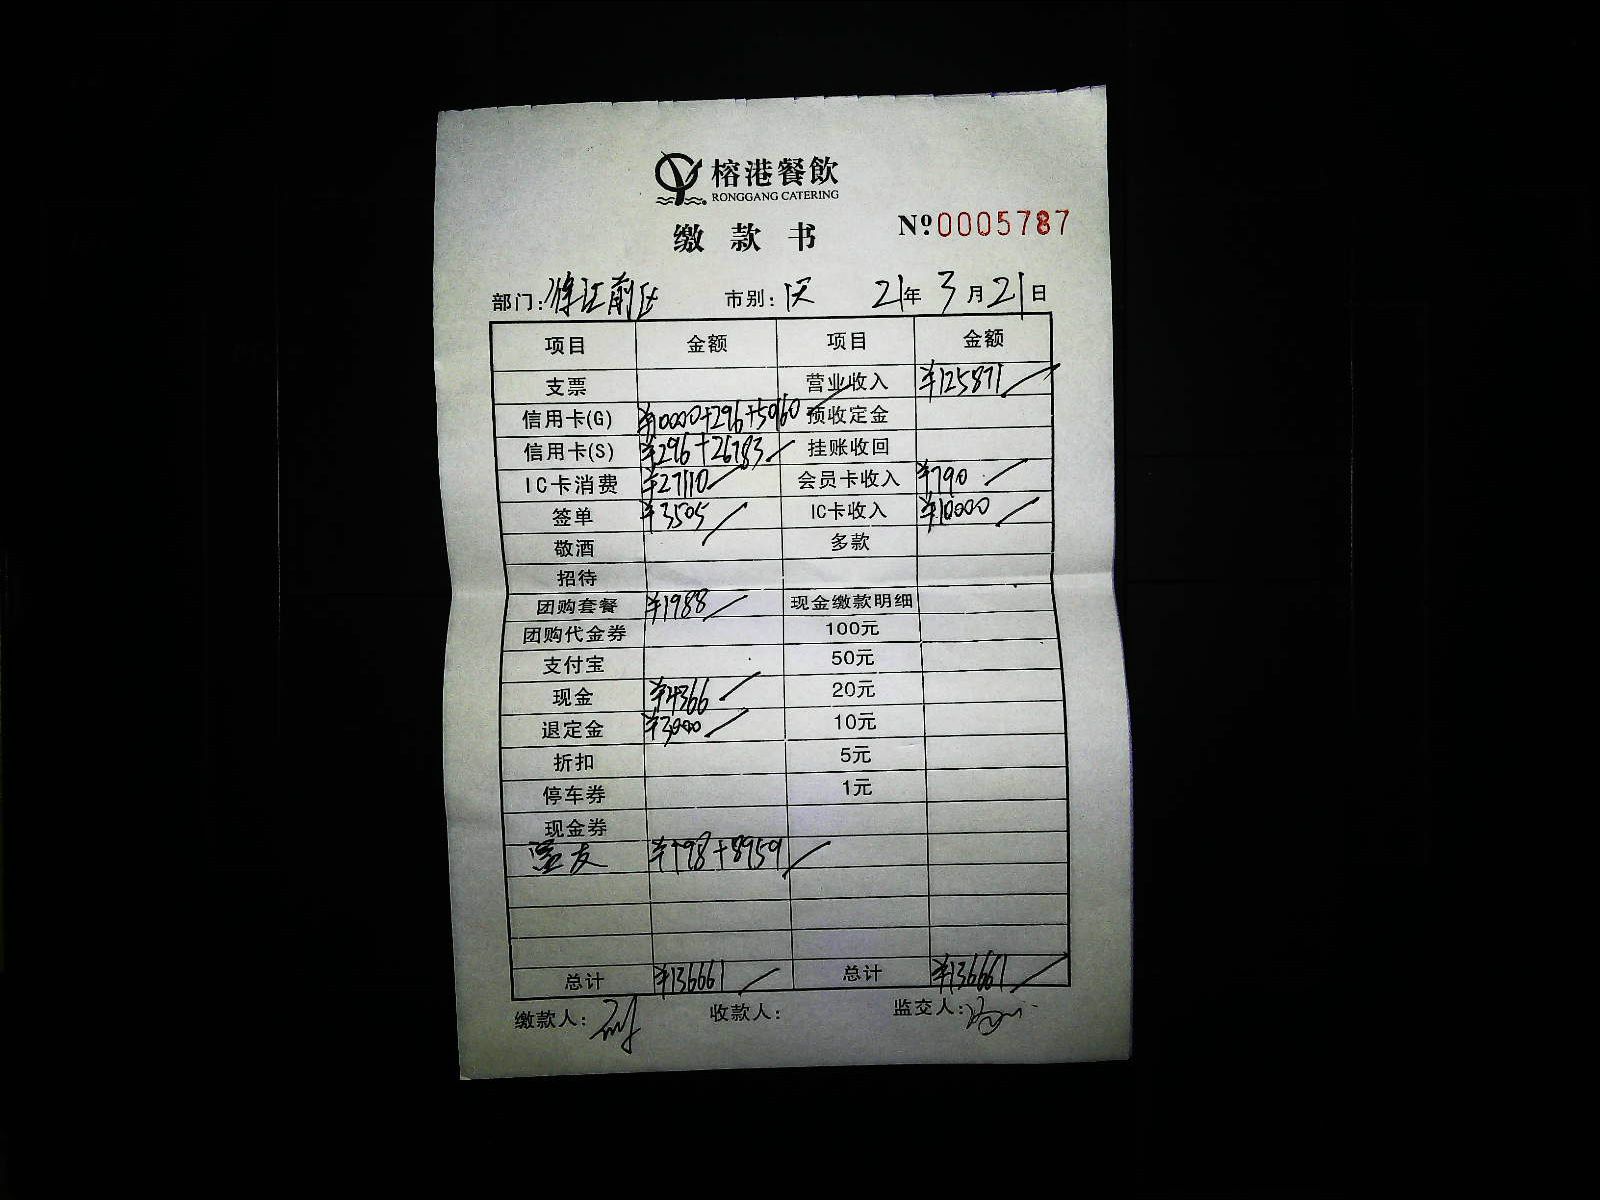 榕港餐飲
RONGGANG CATERING
缴款书 Nº0005787
部门: 市别: 21年3月21日
项目 金额 项目 金额
支票 营业收入 ¥125871
信用卡(G) 预收定金
信用卡(S) ¥296+26783 挂账收回
IC卡消费 ¥27110 会员卡收入 ¥790
签单 ¥3505 IC卡收入 ¥10000
敬酒 多款
招待
团购套餐 ¥1988 现金缴款明细
团购代金券 100元
支付宝 50元
现金 ¥4366 20元
退定金 ¥3000 10元
折扣 5元
停车券 1元
现金券
¥798+8959
总计 ¥136661 总计 ¥136661
缴款人: 收款人: 监交人: